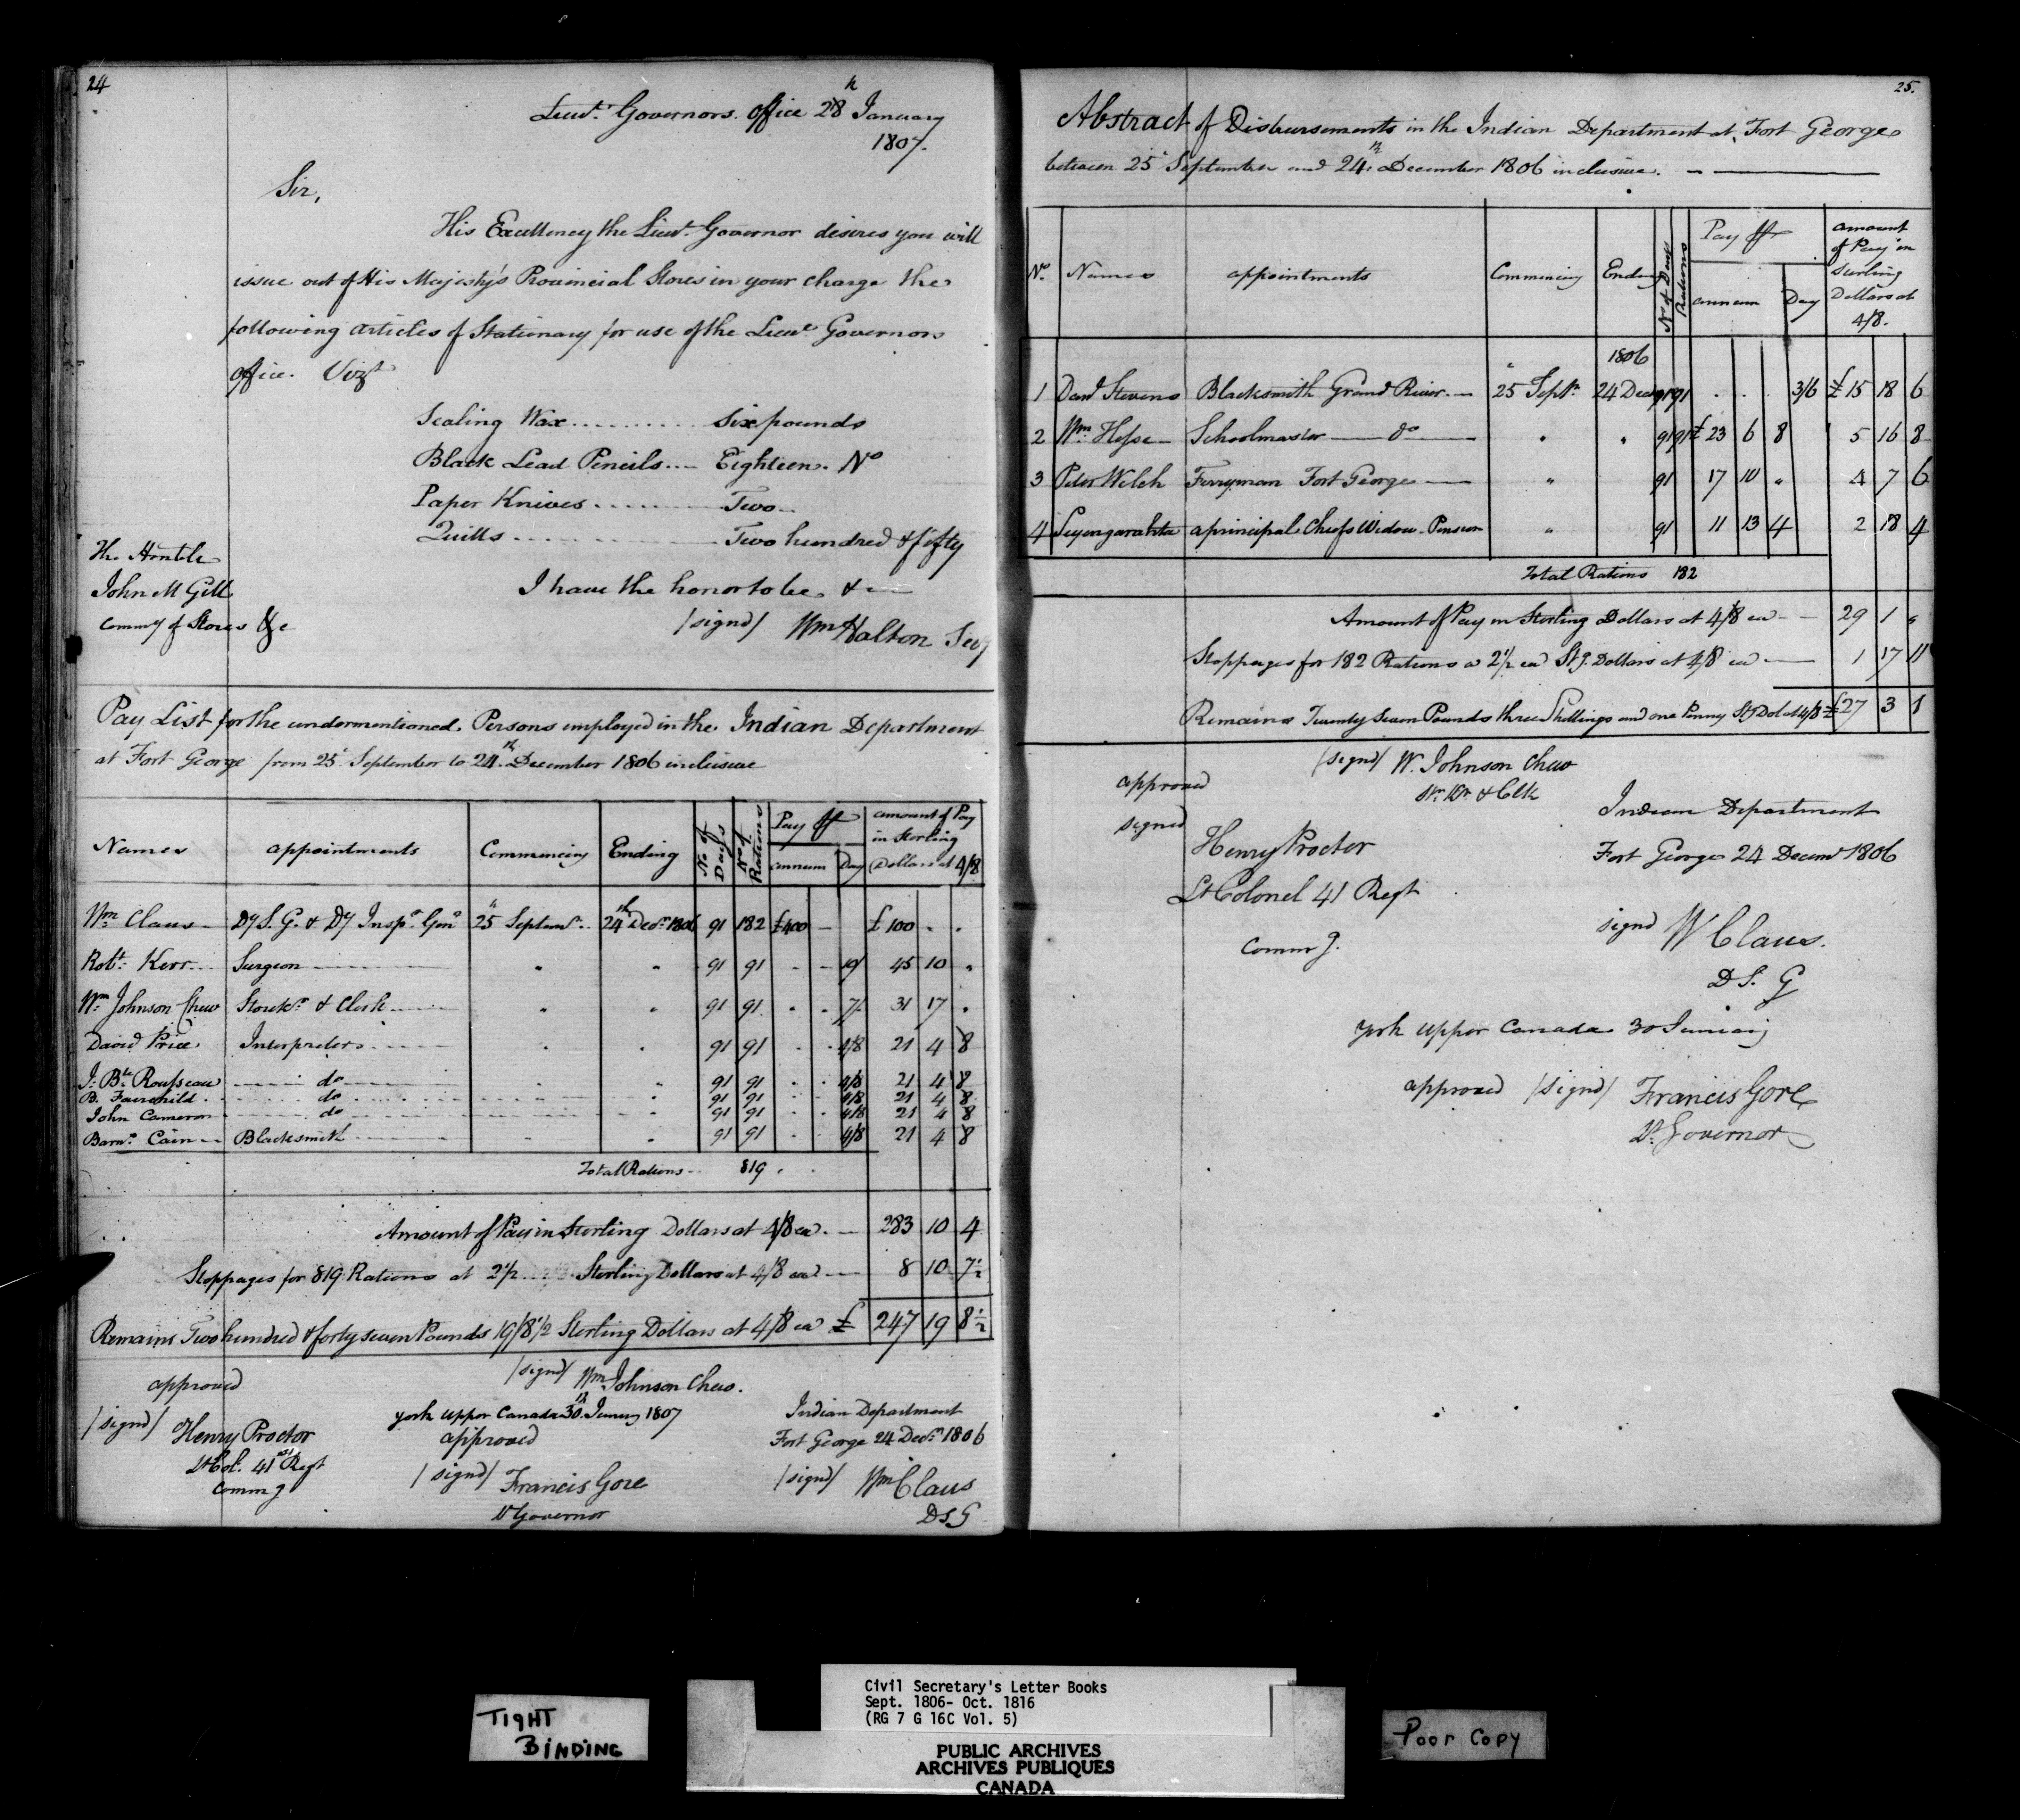 24
Lieut. Governors office 28th January
1807.
Sir,
His Excellency the Lieut. Governor desires you will
issue out of His Majesty's Provincial Stores in your charge the
following articles of Stationary for use of the Lieut Governors
office. Vizt
Sealing Wax .......... six pounds
Black Lead Pencils .... Eighteen. No
Paper Knives .......... Two
Quills .......... Two hundred & fifty
The Honble
John M Gill
Commy of Stores &c
I have the honor to be &
/signd/ Wm Halton Secy
Pay List for the undermentioned Persons employed in the Indian Department
at Fort George from 25 September to 24th December 1806 inclusive
Names appointments Commencing Ending No of Days No of Rations Pay pr annum Day amount of Pay in Sterling Dollars at 4/8
Wm Claus Dy S. G. & Dy Inspr Genl 25 Septemr 24th Decr 1806 91 182 £400 - £100 . .
Robt Kerr Surgeon " " 91 91 . - 10/ 45 10 "
Wm Johnson Chew Storekr & Clerk " " 91 91 . . 7/ 31 17 .
David Price Interpreter . . 91 91 . . 4/8 21 4 8
J: Bte Rousseau do . " 91 91 . . 4/8 21 4 8
B. Fairchild do " 91 91 . . 4/8 21 4 8
John Cameron do 91 91 . . 4/8 21 4 8
Barny Cain Blacksmith . 91 91 . . 4/8 21 4 8
Total Rations 819
Amount of Pay in Sterling Dollars at 4/8 ea. 283 10 4
Stoppages for 819 Rations at 2½ Sterling Dollars at 4/8 ea 8 10 7½
Remains Two hundred & forty seven Pounds 19/8½ Sterling Dollars at 4/8 ea £ 247 19 8½
approved
/signd/ Henry Proctor
Lt Col. 41st Regt
Commg
/signd/ Wm Johnson Chew.
York Upper Canada 30th January 1807
approved
/signd/ Francis Gore
Lt Governor
Indian Department
Fort George 24 Decr 1806
/signd/ Wm Claus
D S. G
25.
Abstract of Disbursements in the Indian Department at Fort George
between 25 September and 24th December 1806 inclusive.
No. Names appointments Commencing Ending No of Days Rations Pay pr annum Day amount of Pay in Sterling Dollars at 4/8.
1806
1 Davd Stevens Blacksmith Grand River 25 Septr 24 Decr 91 91 . . . 3/6 £15 18 6
2 Wm Hesse Schoolmaster do " " 91 91 £23 6 8 5 16 8
3 Peter Welch Ferryman Fort George " 91 17 10 " 4 7 6
4 a principal Chiefs Widow Pension " 91 11 13 4 2 18 4
Total Rations 182
Amount of Pay in Sterling Dollars at 4/8 ea 29 1 "
Stoppages for 182 Rations a 2½ ea Stg. Dollars at 4/8 ea 1 17 11
Remains Twenty Seven Pounds three Shillings and one Penny Stg Dol at 4/8 £27 3 1
approved
signed
Henry Proctor
Lt Colonel 41 Regt
Commg.
/signd/ W. Johnson Chew
St. Kr & Clk
Indian Department
Fort George 24 Decemr 1806
signd W Claus.
D S. G
York Upper Canada 30 January
approved /signd/ Francis Gore
Lt Governor
TIGHT
BINDING
Civil Secretary's Letter Books
Sept. 1806- Oct. 1816
(RG 7 G 16C Vol. 5)
PUBLIC ARCHIVES
ARCHIVES PUBLIQUES
CANADA
Poor Copy